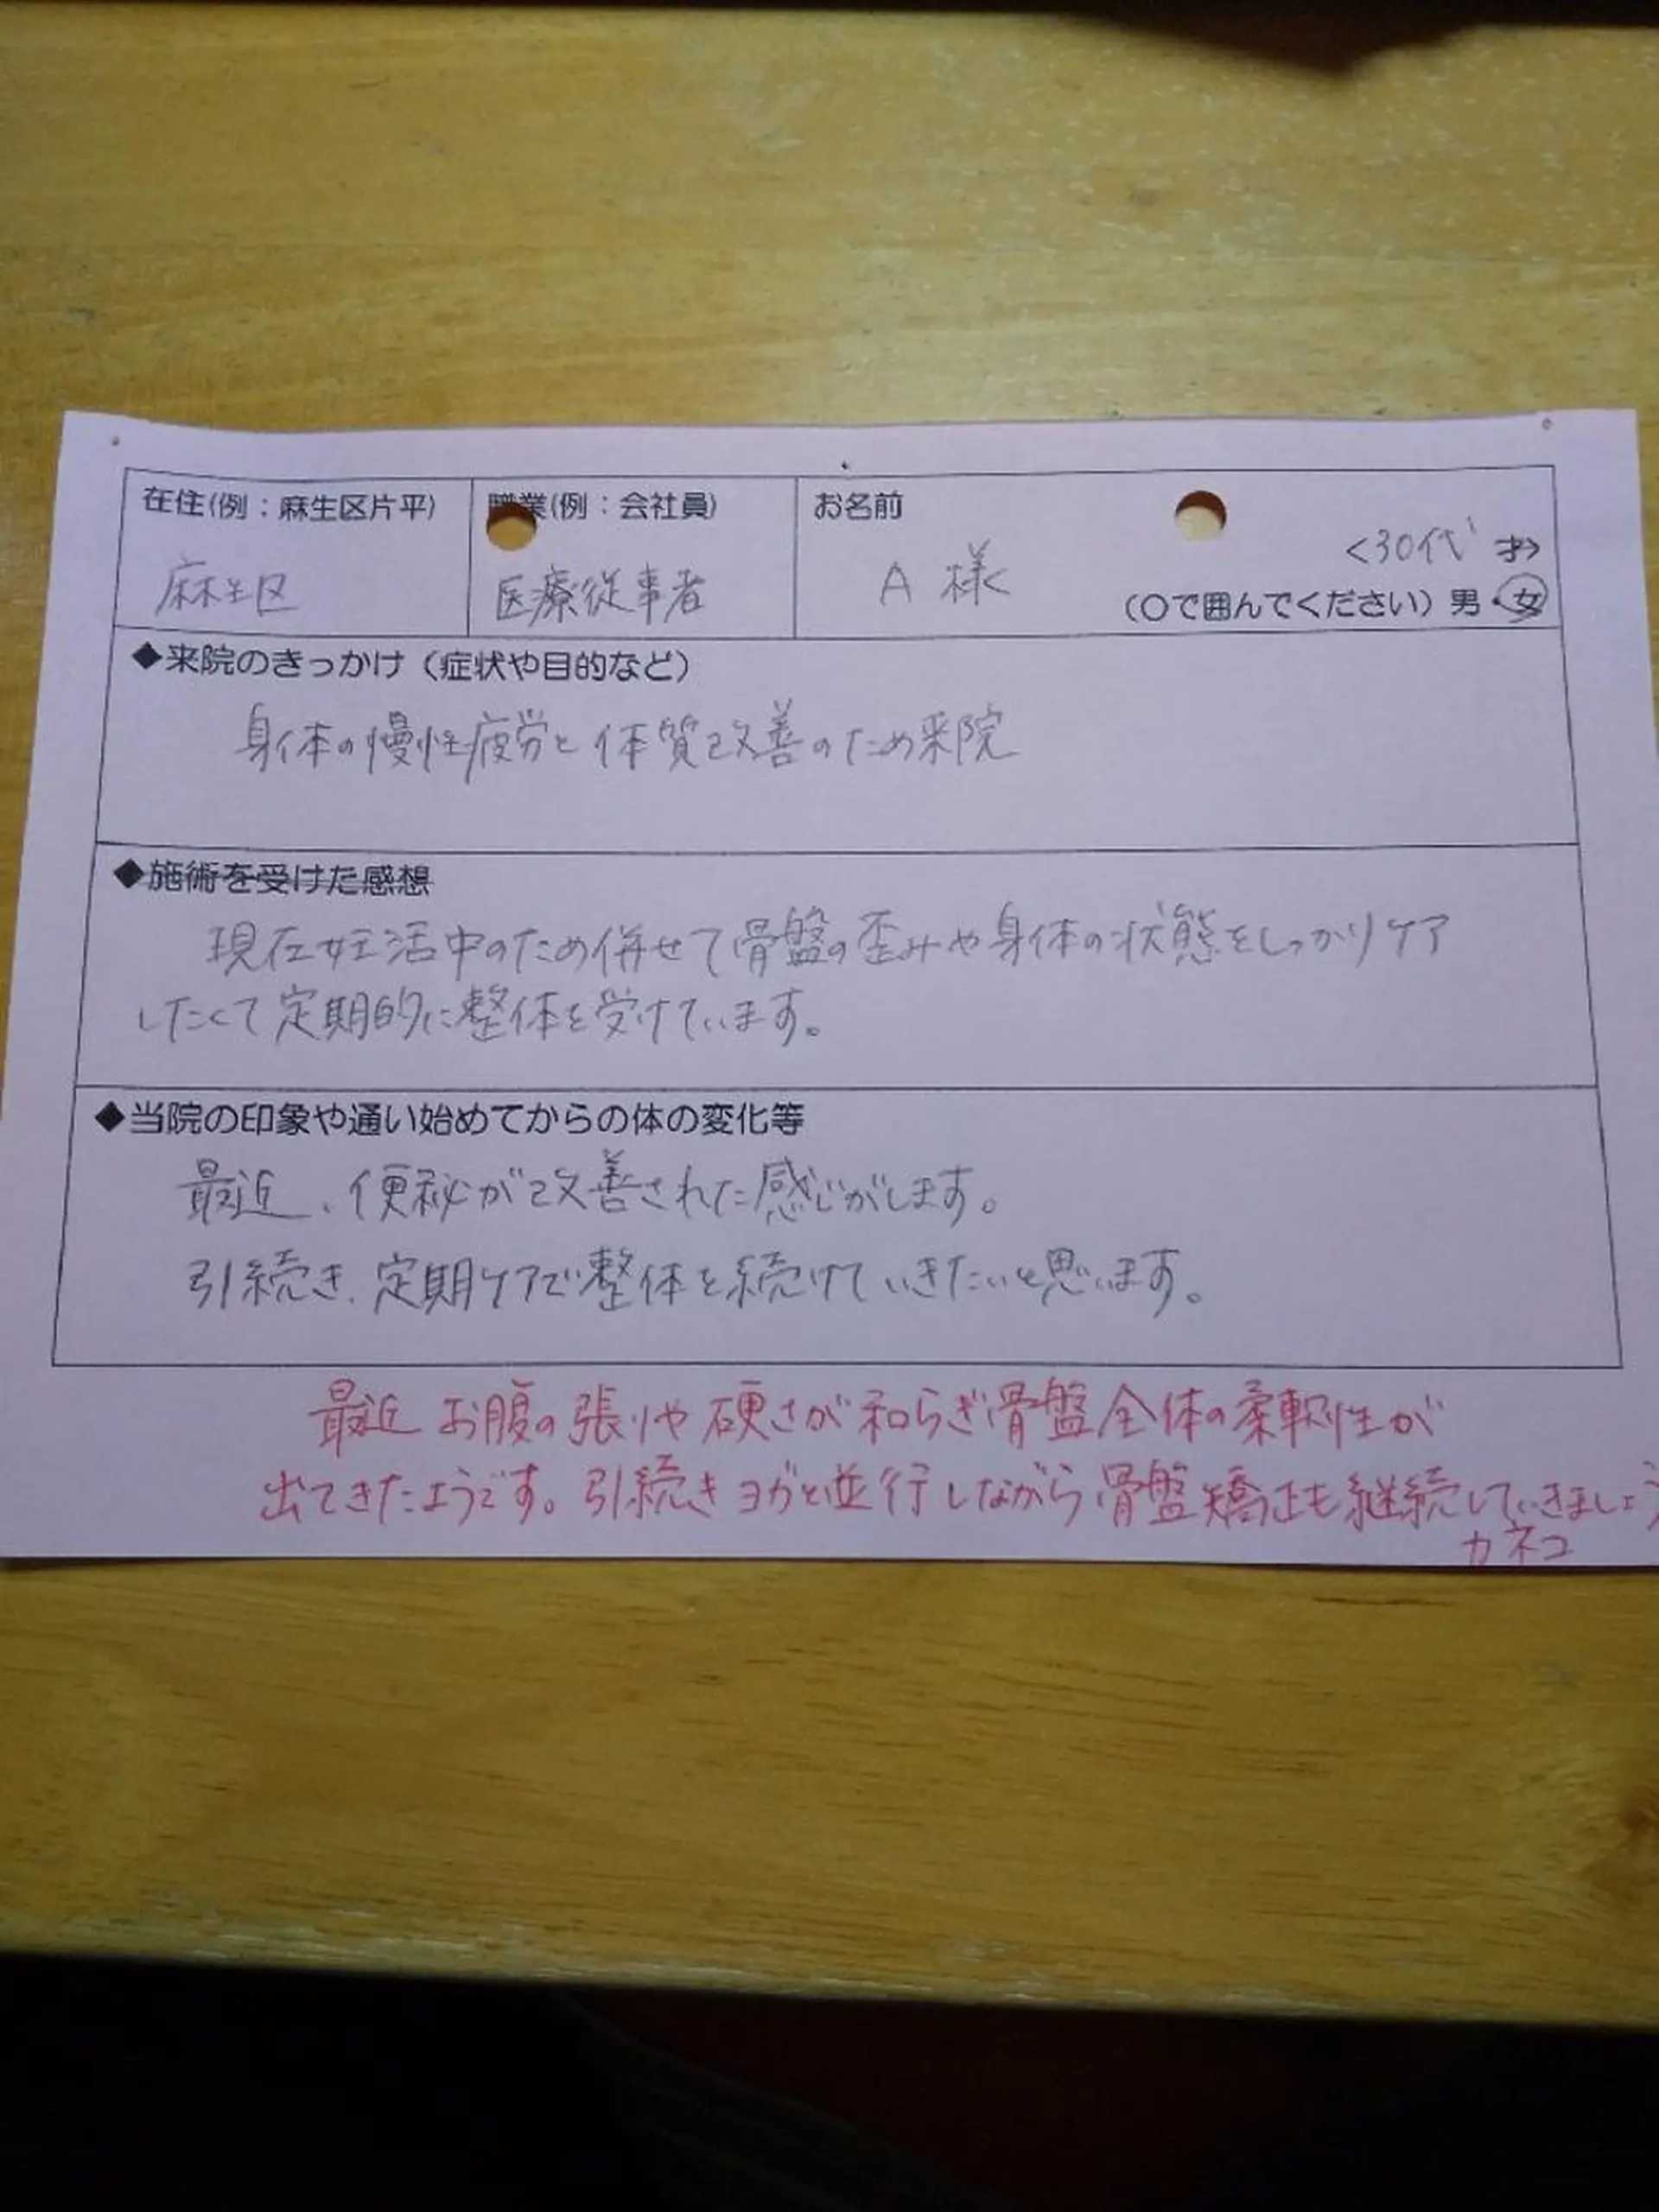 在住(例：麻生区片平)
麻生区
職業(例：会社員)
医療従事者
お名前
A 様
<30代 才>
(〇で囲んでください) 男・女
◆来院のきっかけ（症状や目的など）
身体の慢性疲労と体質改善のため来院
◆施術を受けた感想
現在妊活中のため併せて骨盤の歪みや身体の状態をしっかりケア
したくて定期的に整体を受けています。
◆当院の印象や通い始めてからの体の変化等
最近、便秘が改善された感じがします。
引続き、定期ケアで整体を続けていきたいと思います。
最近お腹の張りや硬さが和らぎ骨盤全体の柔軟性が
出てきたようです。引続きヨガと並行しながら骨盤矯正も継続していきましょう
カネコ